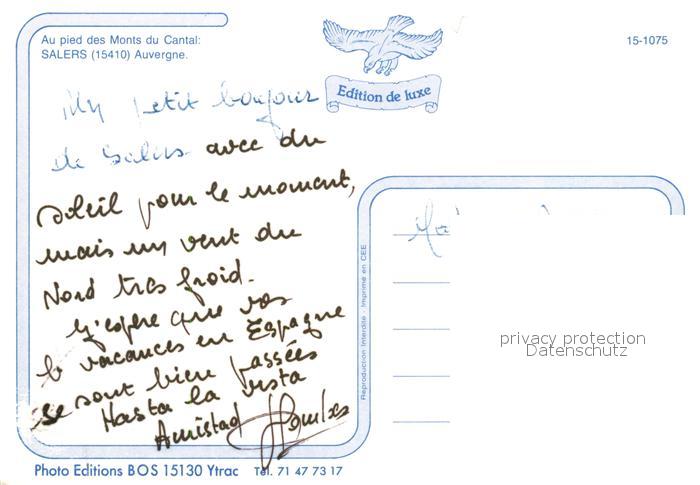 Au pied des Monts du Cantal:
SALERS (15410) Auvergne.
15-1075
Edition de luxe
Un petit bonjour
de Salers avec du
soleil pour le moment,
mais un vent du
Nord tres froid.
J'espère que vos
vacances en Espagne
se sont bien passées
Hasta la vista
Amistad
Reproduction Interdite Imprimé en CEE
privacy protection
Datenschutz
Photo Editions BOS 15130 Ytrac Tél. 71 47 73 17